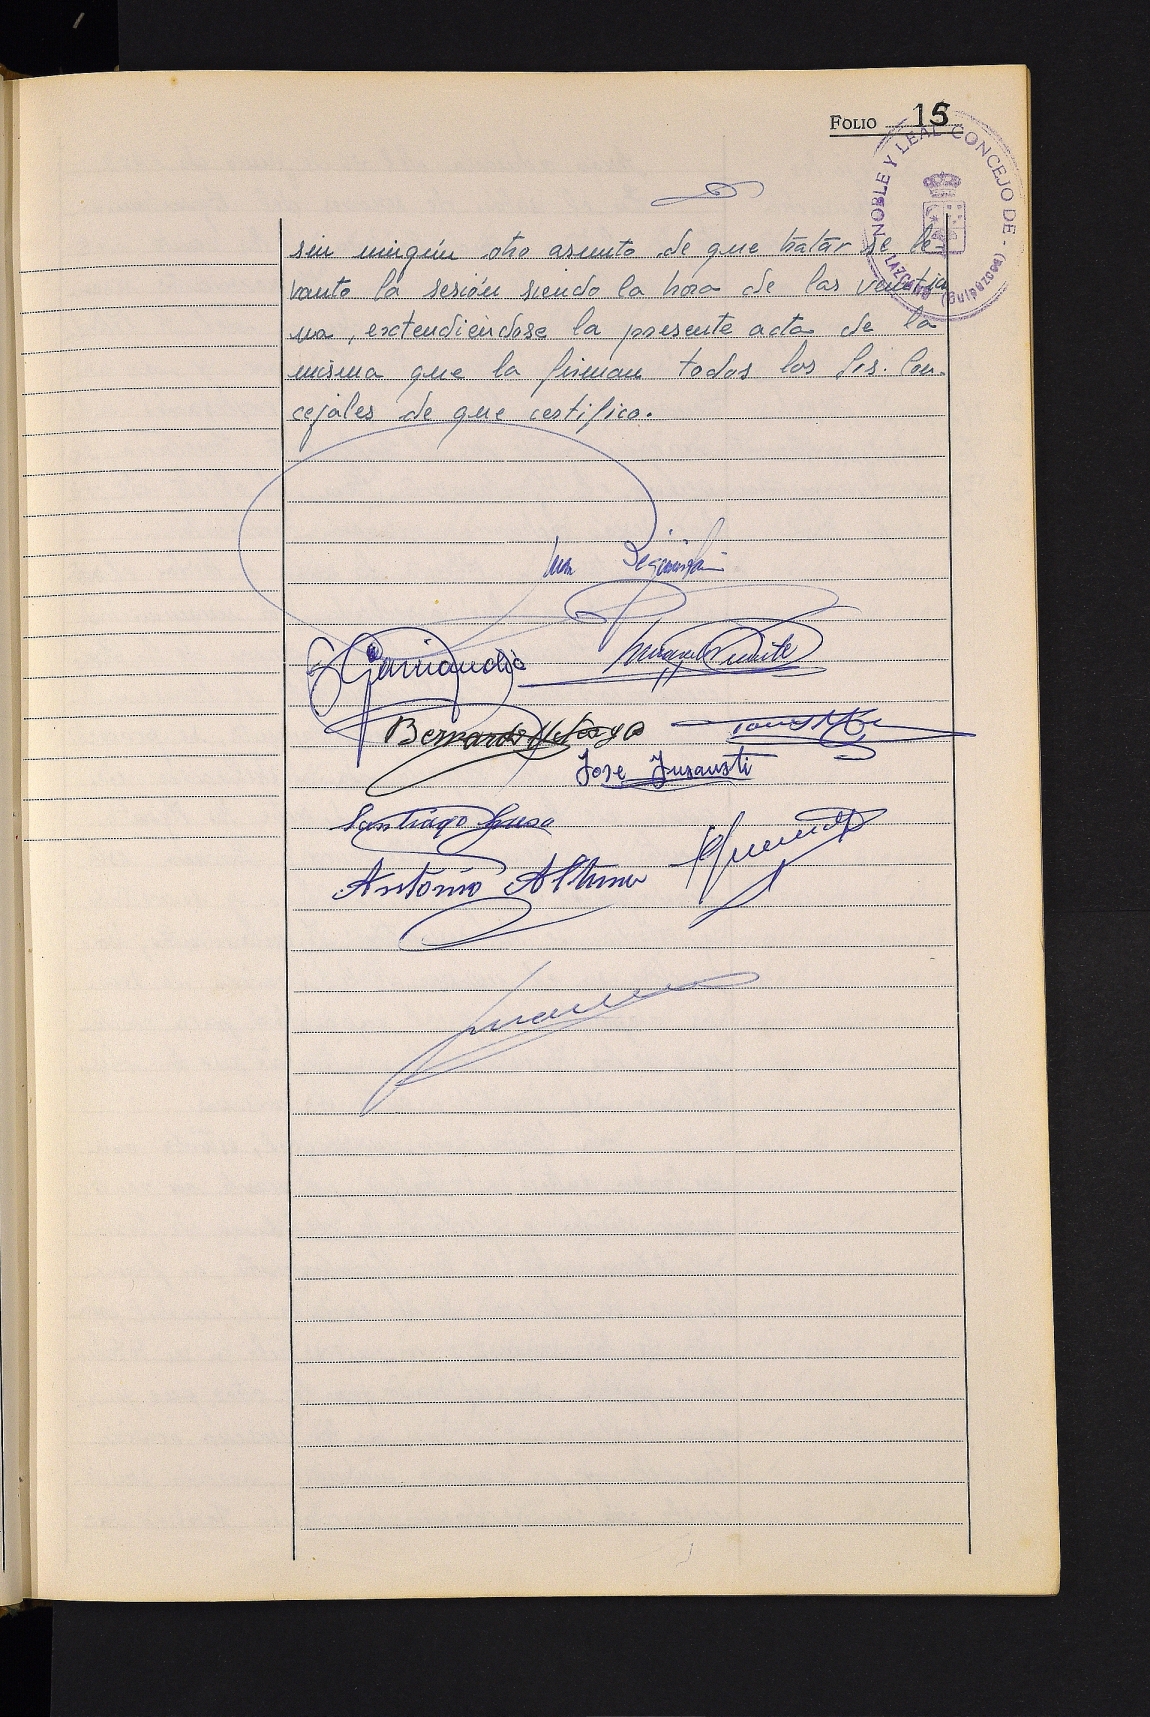 FOLIO 15
NOBLE Y LEAL CONCEJO DE - LAZCANO (Guipúzcoa)
sin ningún otro asunto de que tratar se le-
vanto la sesión siendo la hora de las veintiu
na, extendiéndose la presente acta de la
misma que la firman todos los Srs. Con-
cejales de que certifico.
Garciandia
Bernardo
Jose Insausti
Santiago
Antonio Altuna